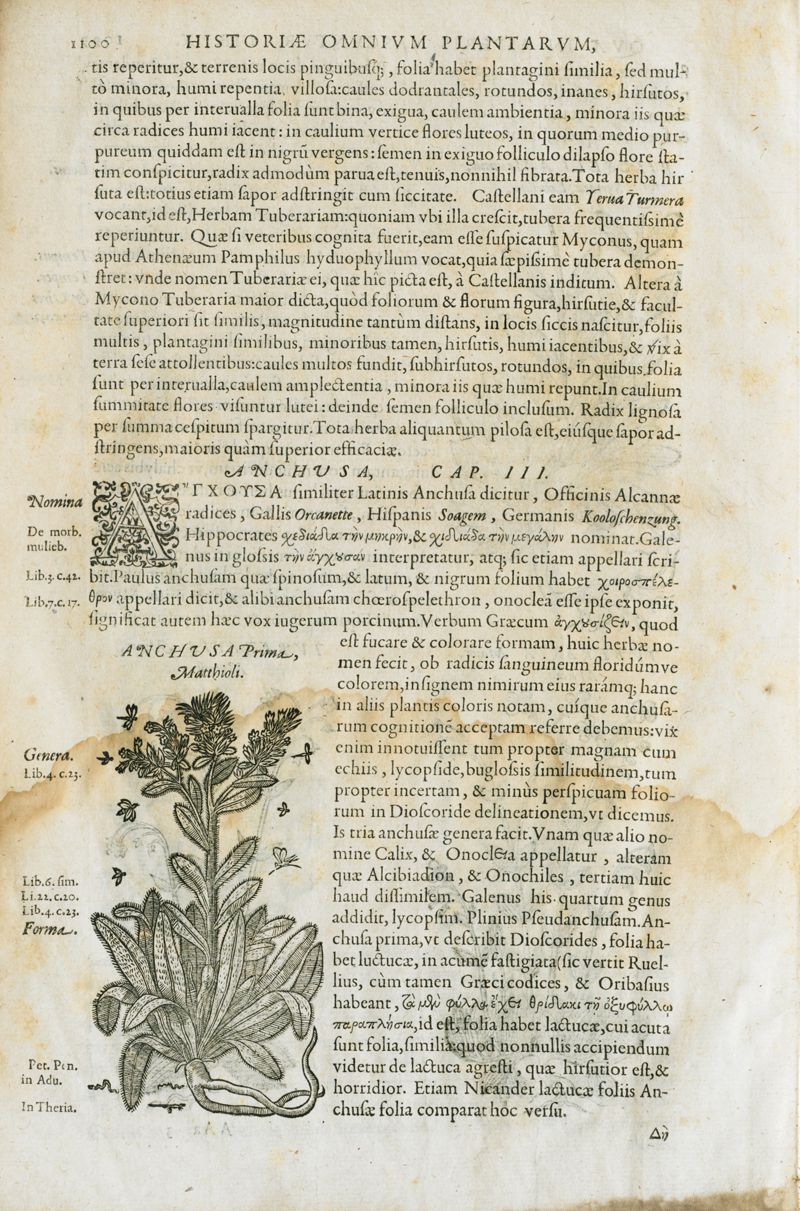 1100 HISTORIÆ OMNIVM PLANTARVM,
tis reperitur,& terrenis locis pinguibuſq; , folia habet plantagini ſimilia, ſed mul-
tò minora, humi repentia, villoſa:caules dodrantales, rotundos, inanes, hirſutos,
in quibus per interualla folia ſunt bina, exigua, caulem ambientia, minora iis quæ
circa radices humi iacent: in caulium vertice flores luteos, in quorum medio pur-
pureum quiddam eſt in nigrū vergens: ſemen in exiguo folliculo dilapſo flore ſta-
tim conſpicitur,radix admodùm parua eſt,tenuis,nonnihil fibrata.Tota herba hir
ſuta eſt:totius etiam ſapor adſtringit cum ſiccitate. Caſtellani eam Yerua Turmera
vocant,id eſt,Herbam Tuberariam:quoniam vbi illa creſcit,tubera frequentiſsimè
reperiuntur. Quæ ſi veteribus cognita fuerit,eam eſſe ſuſpicatur Myconus, quam
apud Athenæum Pamphilus hyduophyllum vocat,quia ſæpiſsimè tubera demon-
ſtret: vnde nomen Tuberariæ ei, quæ hic picta eſt, à Caſtellanis inditum. Altera à
Mycono Tuberaria maior dicta,quòd foliorum & florum figura,hirſutie,& facul-
tate ſuperiori ſit ſimilis, magnitudine tantùm diſtans, in locis ſiccis naſcitur,foliis
multis, plantagini ſimilibus, minoribus tamen, hirſutis, humi iacentibus,& vix à
terra ſeſe attollentibus:caules multos fundit, ſubhirſutos, rotundos, in quibus folia
ſunt per interualla,caulem amplectentia, minora iis quæ humi repunt.In caulium
ſummitate flores viſuntur lutei: deinde ſemen folliculo incluſum. Radix lignoſa
per ſumma ceſpitum ſpargitur.Tota herba aliquantum piloſa eſt,eiúſque ſapor ad-
ſtringens,maioris quàm ſuperior efficaciæ.
ANCHVSA, CAP. III.
Nomina
ΑΓΧΟΥΣΑ ſimiliter Latinis Anchuſa dicitur, Officinis Alcannæ
radices, Gallis Orcanette, Hiſpanis Soagem, Germanis Kooloſchenzung.
De morb.
mulieb.
Hippocrates σχεδιάδα τὴν μηκρὴν,& σχιδιάδα τὴν μεγάλην nominat.Gale-
nus in gloſsis τὴν ἄγχουσαν interpretatur, atq; ſic etiam appellari ſcri-
Lib.3. c.42.
bit.Paulus anchuſam quæ ſpinoſum,& latum, & nigrum folium habet χοιροσπέλε-
Lib.7.c. 17.
θρον appellari dicit,& alibi anchuſam chœroſpelethron, onocleā eſſe ipſe exponit,
ſignificat autem hæc vox iugerum porcinum.Verbum Græcum ἀγχουσίζειν, quod
ANCHVSA Prima,
Matthioli.
eſt fucare & colorare formam, huic herbæ no-
men fecit, ob radicis ſanguineum floridúmve
colorem,inſignem nimirum eius rarámq; hanc
in aliis plantis coloris notam, cuíque anchuſa-
rum cognitionē acceptam referre debemus:vix
Genera.
Lib.4. c.23.
enim innotuiſſent tum propter magnam cum
echiis, lycopſide,bugloſsis ſimilitudinem,tum
propter incertam, & minùs perſpicuam folio-
rum in Dioſcoride delineationem,vt dicemus.
Is tria anchuſæ genera facit.Vnam quæ alio no-
mine Calix, & Onocleia appellatur, alteram
Lib.6. ſim.
Li.22.c.20.
Lib.4. c.23.
Forma.
quæ Alcibiadion, & Onochiles, tertiam huic
haud diſsimilem. Galenus his quartum genus
addidit, lycopſim. Plinius Pſeudanchuſam.An-
chuſa prima,vt deſcribit Dioſcorides, folia ha-
bet luctucæ, in acumē faſtigiata(ſic vertit Ruel-
lius, cùm tamen Græci codices, & Oribaſius
habeant, τὰ μὲν φύλλα ἔχει θρίδακι τῇ ὀξυφύλλῳ
παραπλήσια,id eſt, folia habet lactucæ,cui acuta
ſunt folia,ſimilia:quod nonnullis accipiendum
Pet. Pen.
in Adu.
videtur de lactuca agreſti, quæ hirſutior eſt,&
horridior. Etiam Nicander lactucæ foliis An-
In Theria.
chuſæ folia comparat hoc verſu.
Δὴ